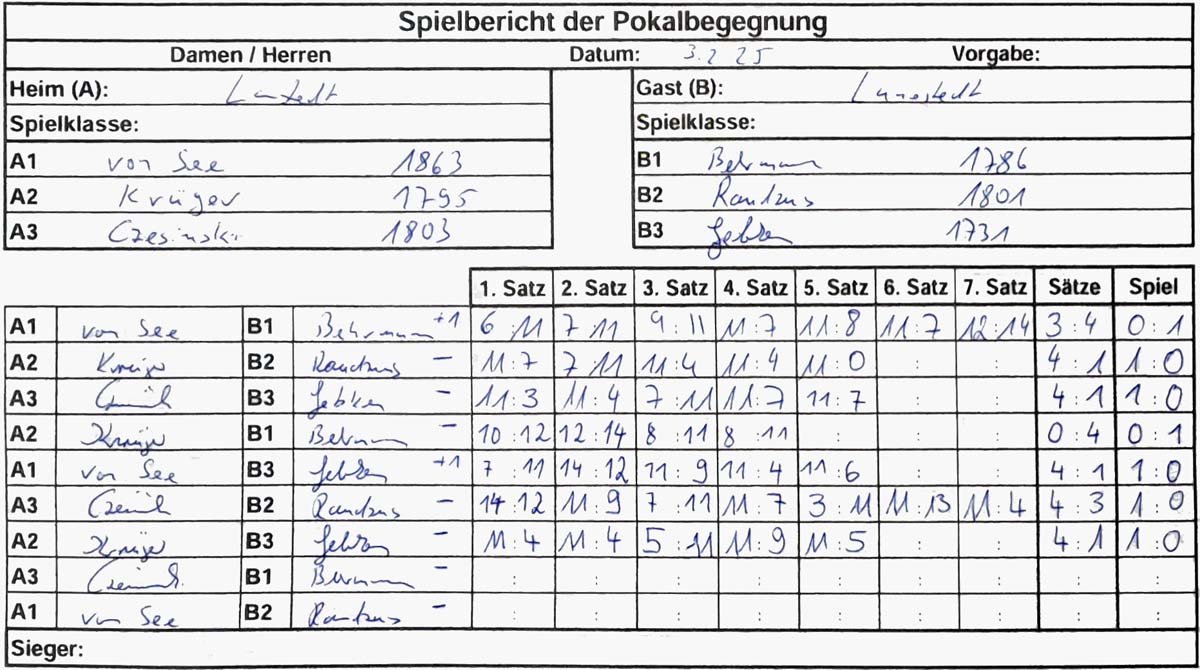 Spielbericht der Pokalbegegnung
Damen / Herren Datum: 3.2 25 Vorgabe:
Heim (A): Gast (B): Lunestedt
Spielklasse: Spielklasse:
A1 von See 1863 B1 Behrmann 1786
A2 Krüger 1795 B2 Rantzus 1801
A3 Czesinski 1803 B3 1731
1. Satz 2. Satz 3. Satz 4. Satz 5. Satz 6. Satz 7. Satz Sätze Spiel
A1 von See B1 Behrmann +1 6 :11 7 11 9 : 11 11 : 7 11 : 8 11 : 7 12 : 14 3 : 4 0 : 1
A2 Krüger B2 Rantzus – 11 : 7 7 11 11 : 4 11 : 4 11 : 0 : : 4 : 1 1 : 0
A3 B3 – 11 : 3 11 : 4 7 : 11 11 : 7 11 : 7 : : 4 : 1 1 : 0
A2 Krüger B1 Behrmann – 10 : 12 12 : 14 8 : 11 8 : 11 : : : 0 : 4 0 : 1
A1 von See B3 +1 7 : 11 14 : 12 11 : 9 11 : 4 11 : 6 : : 4 : 1 1 : 0
A3 B2 Rantzus – 14 : 12 11 : 9 7 : 11 11 : 7 3 : 11 11 : 13 11 : 4 4 : 3 1 : 0
A2 Krüger B3 – 11 : 4 11 : 4 5 : 11 11 : 9 11 : 5 : : 4 : 1 1 : 0
A3 B1 Behrmann – : : : : : : : : :
A1 von See B2 Rantzus – : : : : : : : : :
Sieger: